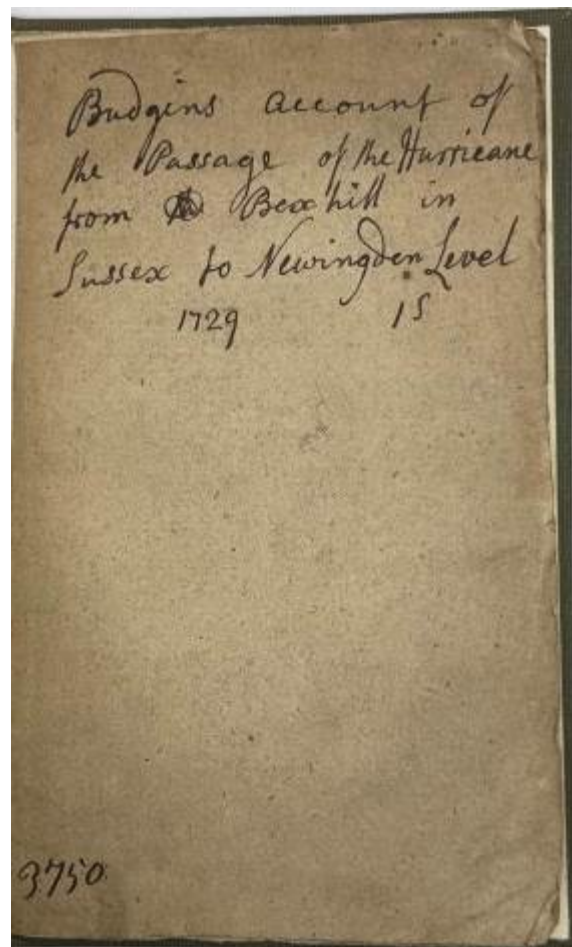 Budgins account of
the Passage of the Hurricane
from Bexhill in
Sussex to Newingden Level
1729 1s
3750